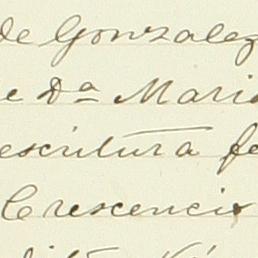 de Gonzalez
e Dª Maria
escritura fe
Crescenci